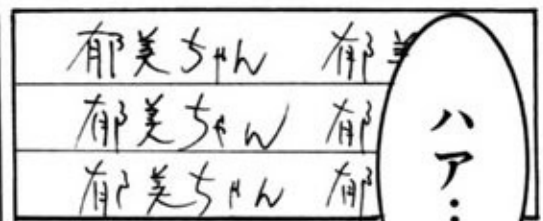 郁美ちゃん 郁美
郁美ちゃん 郁
郁美ちゃん 郁
ハア・